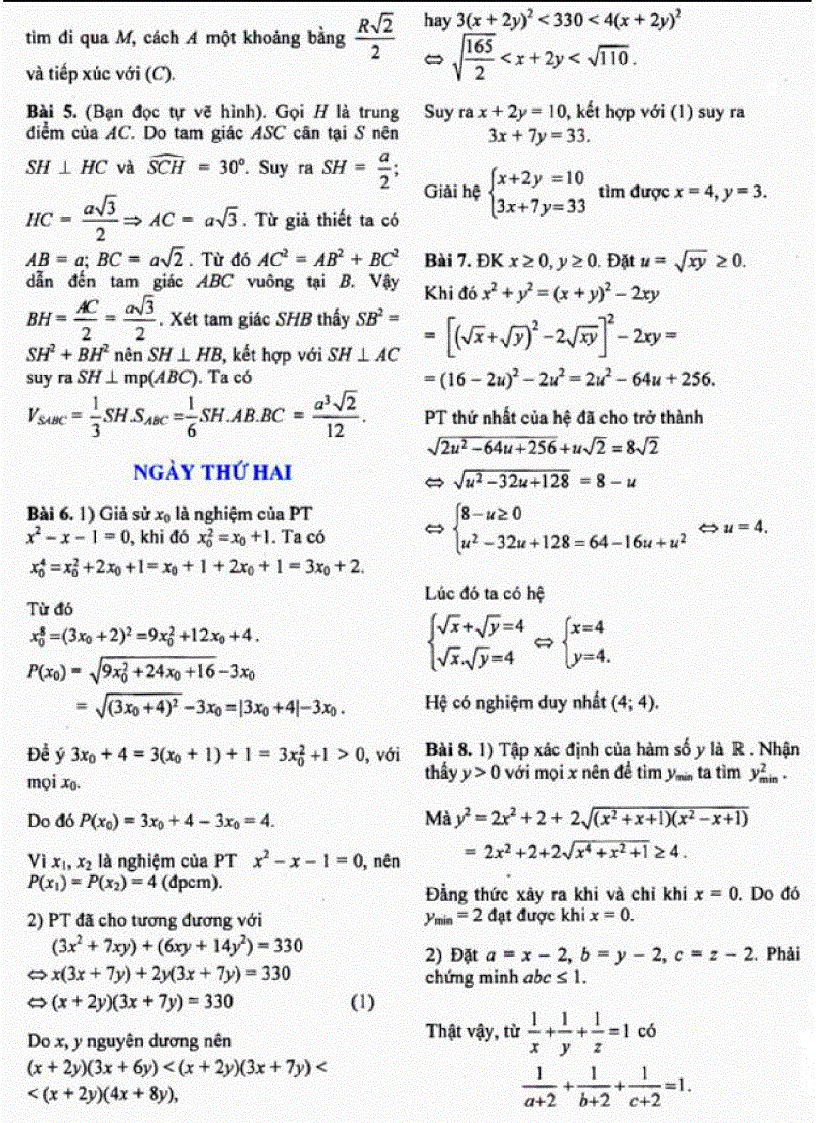 tìm đi qua M, cách A một khoảng bằng R√2/2
và tiếp xúc với (C).
Bài 5. (Bạn đọc tự vẽ hình). Gọi H là trung
điểm của AC. Do tam giác ASC cân tại S nên
SH ⊥ HC và SCH = 30°. Suy ra SH = a/2;
HC = a√3/2 ⇒ AC = a√3. Từ giả thiết ta có
AB = a; BC = a√2. Từ đó AC² = AB² + BC²
dẫn đến tam giác ABC vuông tại B. Vậy
BH = AC/2 = a√3/2. Xét tam giác SHB thấy SB² =
SH² + BH² nên SH ⊥ HB, kết hợp với SH ⊥ AC
suy ra SH ⊥ mp(ABC). Ta có
V_SABC = 1/3 SH.S_ABC = 1/6 SH.AB.BC = a³√2/12.
NGÀY THỨ HAI
Bài 6. 1) Giả sử x₀ là nghiệm của PT
x² – x – 1 = 0, khi đó x₀² = x₀ + 1. Ta có
x₀⁴ = x₀² + 2x₀ + 1 = x₀ + 1 + 2x₀ + 1 = 3x₀ + 2.
Từ đó
x₀⁸ = (3x₀ + 2)² = 9x₀² + 12x₀ + 4.
P(x₀) = √(9x₀² + 24x₀ + 16) – 3x₀
= √((3x₀ + 4)²) – 3x₀ = |3x₀ + 4| – 3x₀.
Để ý 3x₀ + 4 = 3(x₀ + 1) + 1 = 3x₀² + 1 > 0, với
mọi x₀.
Do đó P(x₀) = 3x₀ + 4 – 3x₀ = 4.
Vì x₁, x₂ là nghiệm của PT x² – x – 1 = 0, nên
P(x₁) = P(x₂) = 4 (đpcm).
2) PT đã cho tương đương với
(3x² + 7xy) + (6xy + 14y²) = 330
⇔ x(3x + 7y) + 2y(3x + 7y) = 330
⇔ (x + 2y)(3x + 7y) = 330 (1)
Do x, y nguyên dương nên
(x + 2y)(3x + 6y) < (x + 2y)(3x + 7y) <
< (x + 2y)(4x + 8y),
hay 3(x + 2y)² < 330 < 4(x + 2y)²
⇔ √(165/2) < x + 2y < √110.
Suy ra x + 2y = 10, kết hợp với (1) suy ra
3x + 7y = 33.
Giải hệ {x + 2y = 10; 3x + 7y = 33 tìm được x = 4, y = 3.
Bài 7. ĐK x ≥ 0, y ≥ 0. Đặt u = √xy ≥ 0.
Khi đó x² + y² = (x + y)² – 2xy
= [(√x + √y)² – 2√xy]² – 2xy =
= (16 – 2u)² – 2u² = 2u² – 64u + 256.
PT thứ nhất của hệ đã cho trở thành
√(2u² – 64u + 256) + u√2 = 8√2
⇔ √(u² – 32u + 128) = 8 – u
⇔ {8 – u ≥ 0; u² – 32u + 128 = 64 – 16u + u² ⇔ u = 4.
Lúc đó ta có hệ
{√x + √y = 4; √x.√y = 4 ⇔ {x = 4; y = 4.
Hệ có nghiệm duy nhất (4; 4).
Bài 8. 1) Tập xác định của hàm số y là ℝ. Nhận
thấy y > 0 với mọi x nên để tìm y_min ta tìm y²_min.
Mà y² = 2x² + 2 + 2√((x² + x + 1)(x² – x + 1))
= 2x² + 2 + 2√(x⁴ + x² + 1) ≥ 4.
Đẳng thức xảy ra khi và chỉ khi x = 0. Do đó
y_min = 2 đạt được khi x = 0.
2) Đặt a = x – 2, b = y – 2, c = z – 2. Phải
chứng minh abc ≤ 1.
Thật vậy, từ 1/x + 1/y + 1/z = 1 có
1/(a+2) + 1/(b+2) + 1/(c+2) = 1.